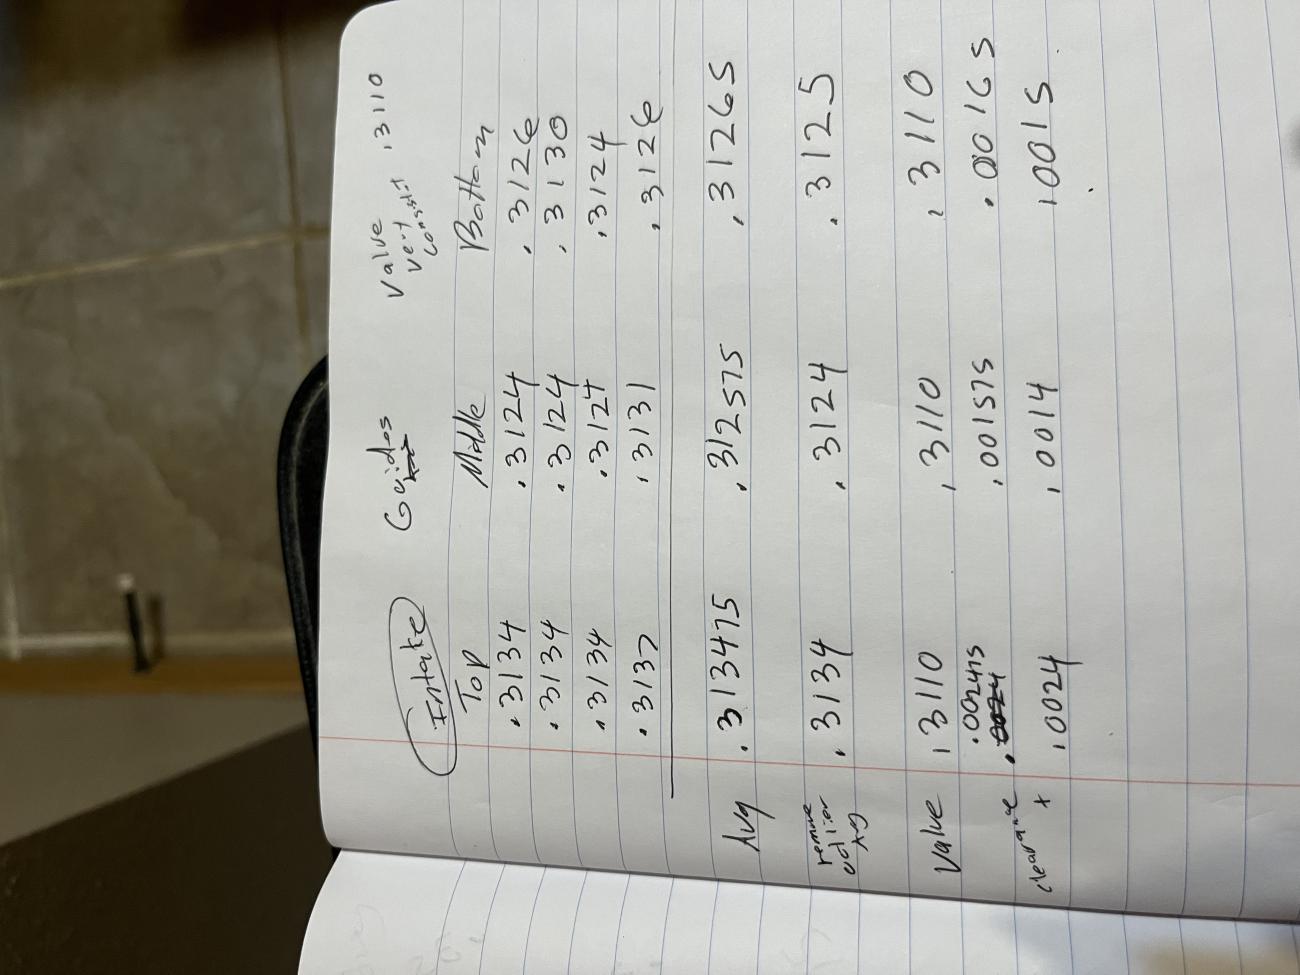 Intake Guides Valve .3110
very
consist
Top Middle Bottom
.3134 .3124 .3126
.3134 .3124 .3130
.3134 .3124 .3124
.3137 .3131 .3126
Avg .313475 .312575 .31265
remove
outlier
Avg .3134 .3124 .3125
Valve .3110 .3110 .3110
.002475 .001575 .00165
clearance
.0024 .0014 .0015